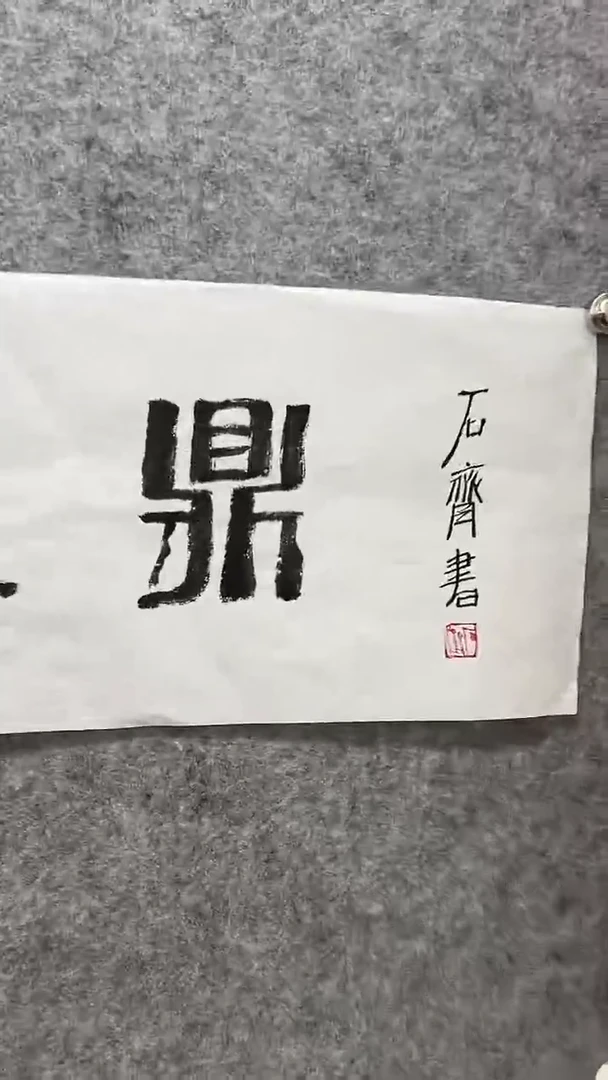 鼎
石齊書